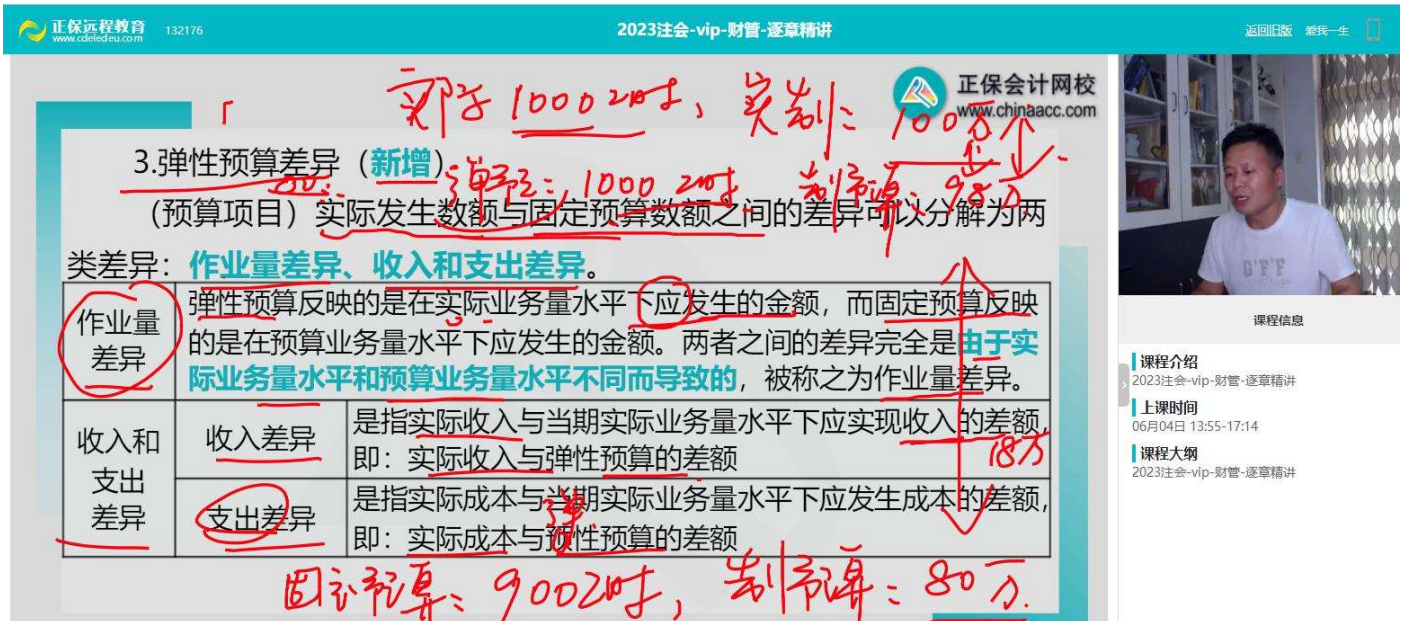 正保远程教育
www.cdeledu.com
132176
2023注会-vip-财管-逐章精讲
返回旧版 爱我一生
正保会计网校
www.chinaacc.com
实际 1000工时，实制：100万个
3.弹性预算差异（新增）
弹预：1000工时 制预算：98万
（预算项目）实际发生数额与固定预算数额之间的差异可以分解为两
类差异：作业量差异、收入和支出差异。
作业量
差异
弹性预算反映的是在实际业务量水平下应发生的金额，而固定预算反映
的是在预算业务量水平下应发生的金额。两者之间的差异完全是由于实
际业务量水平和预算业务量水平不同而导致的，被称之为作业量差异。
收入和
支出
差异
收入差异
是指实际收入与当期实际业务量水平下应实现收入的差额，
即：实际收入与弹性预算的差额
18万
支出差异
是指实际成本与当期实际业务量水平下应发生成本的差额，
即：实际成本与预性预算的差额
弹
固定预算：900工时，制预算：80万
G'F'F
课程信息
课程介绍
2023注会-vip-财管-逐章精讲
上课时间
06月04日 13:55-17:14
课程大纲
2023注会-vip-财管-逐章精讲